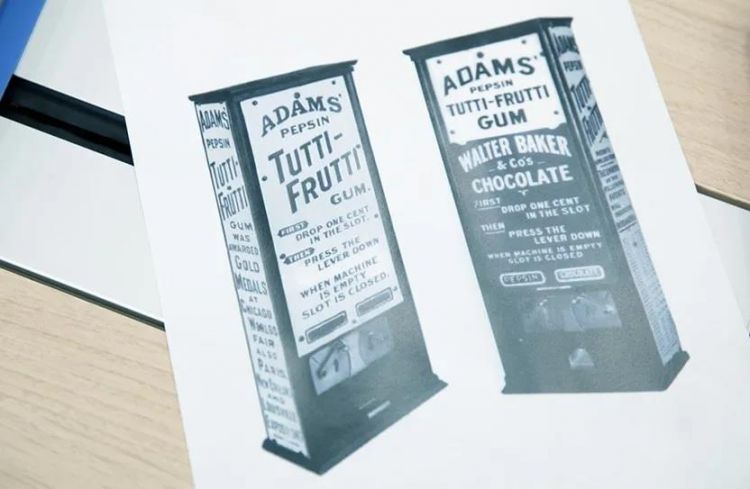 ADAMS'
PEPSIN
TUTTI-
FRUTTI
GUM
WAS
AWARDED
GOLD
MEDALS
AT
CHICAGO
WORLDS
FAIR
ALSO
PARIS
NEW ORLEANS
AND
LOUISVILLE
EXPOSITIONS
ADAMS'
PEPSIN
TUTTI-
FRUTTI
GUM.
FIRST DROP ONE CENT
IN THE SLOT.
THEN PRESS THE
LEVER DOWN
WHEN MACHINE
IS EMPTY
SLOT IS CLOSED.
ADAMS'
PEPSIN
TUTTI-FRUTTI
GUM
WALTER BAKER
& Co's
CHOCOLATE
FIRST DROP ONE CENT
IN THE SLOT
THEN PRESS THE
LEVER DOWN
WHEN MACHINE IS EMPTY
SLOT IS CLOSED
PEPSIN CHOCOLATE
ADAMS'
PEPSIN
TUTTI-
FRUTTI